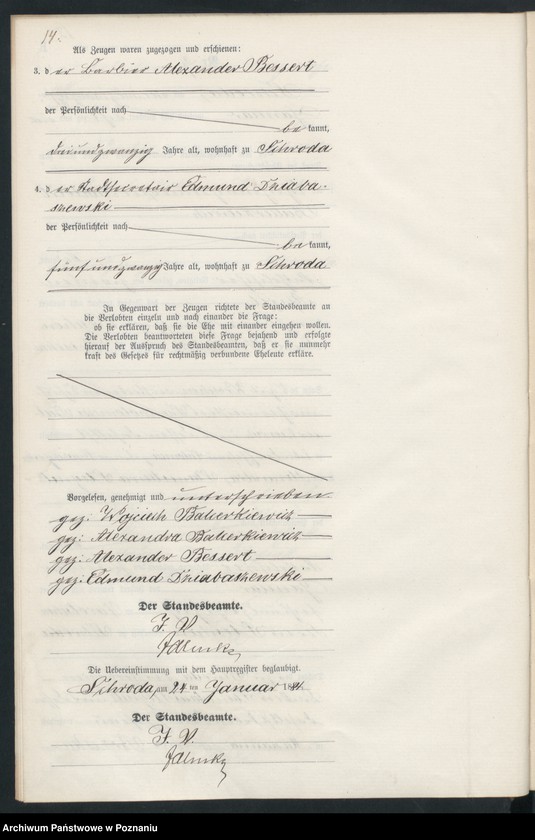 14.
Als Zeugen waren zugezogen und erschienen:
3. der Barbier Alexander Bessert
der Persönlichkeit nach
bekannt,
dreiundzwanzig Jahre alt, wohnhaft zu Schroda
4. der Stadtsecretair Edmund Dziaba-
szewski
der Persönlichkeit nach
bekannt,
fünfundzwanzig Jahre alt, wohnhaft zu Schroda
In Gegenwart der Zeugen richtete der Standesbeamte an
die Verlobten einzeln und nach einander die Frage:
ob sie erklären, daß sie die Ehe mit einander eingehen wollen.
Die Verlobten beantworteten diese Frage bejahend und erfolgte
hierauf der Ausspruch des Standesbeamten, daß er sie nunmehr
kraft des Gesetzes für rechtmäßig verbundene Eheleute erkläre.
Vorgelesen, genehmigt und unterschrieben
gez: Wojciech Balcerkiewicz
gez: Alexandra Balcerkiewicz
gez: Alexander Bessert
gez: Edmund Dziabaszewski
Der Standesbeamte.
J. V.
Die Uebereinstimmung mit dem Hauptregister beglaubigt.
Schroda, am 24 ten Januar 18
Der Standesbeamte.
J. V.
Archiwum Państwowe w Poznaniu